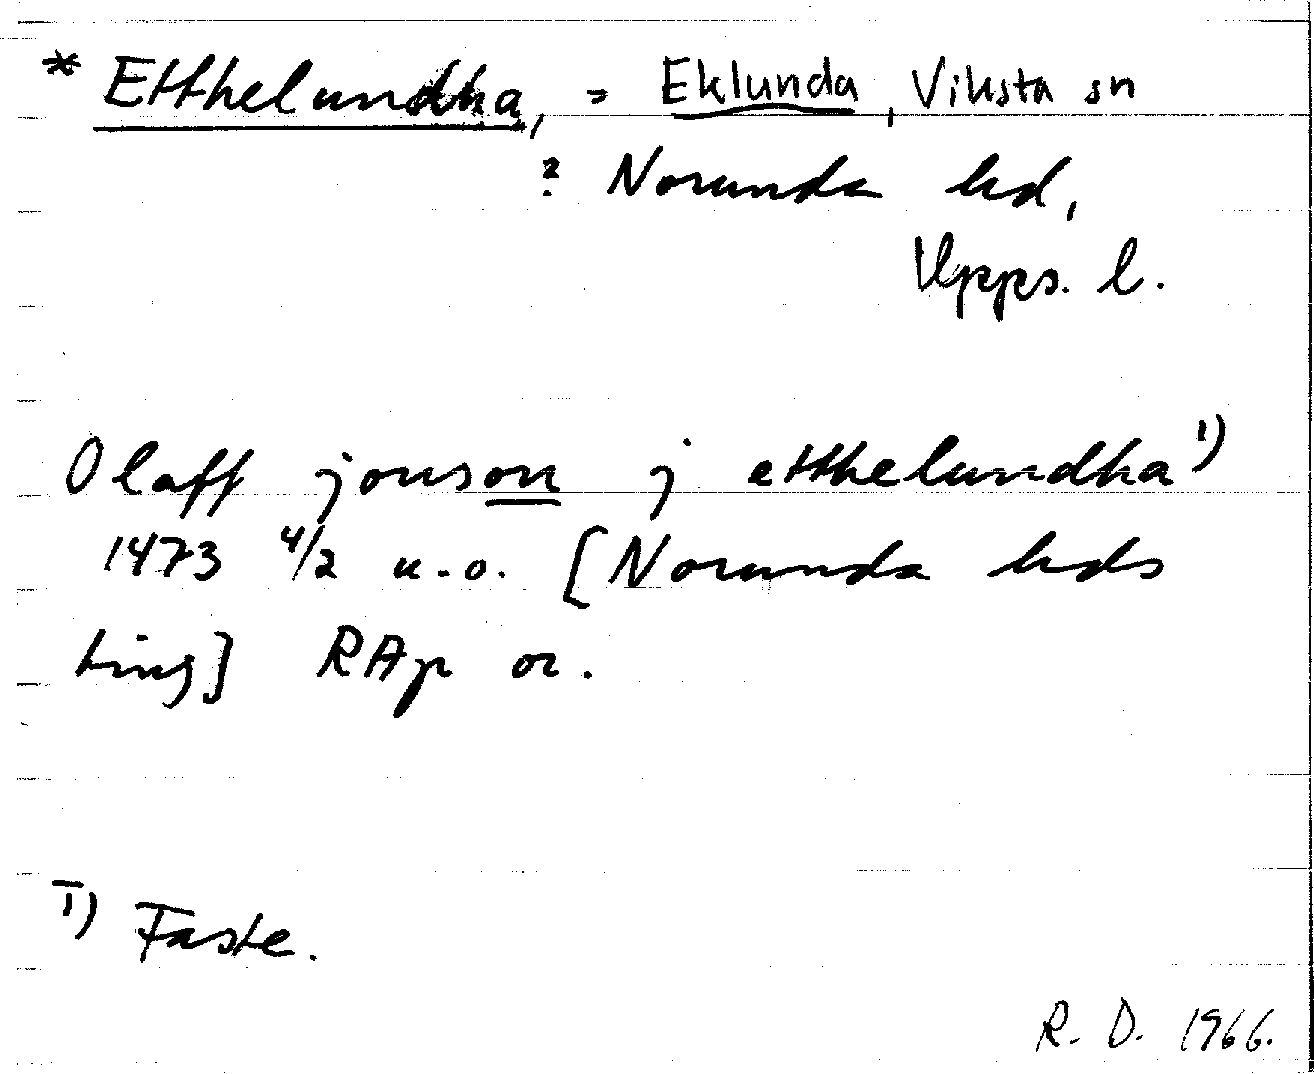 * Etthelundha, = Eklunda, Viksta sn
? Norunda hd,
Upps. l.
Olaff jonson j etthelundha 1)
1473 4/2 u.o. [Norunda hds
ting] RAp or.
1) Faste.
R. D. 1966.